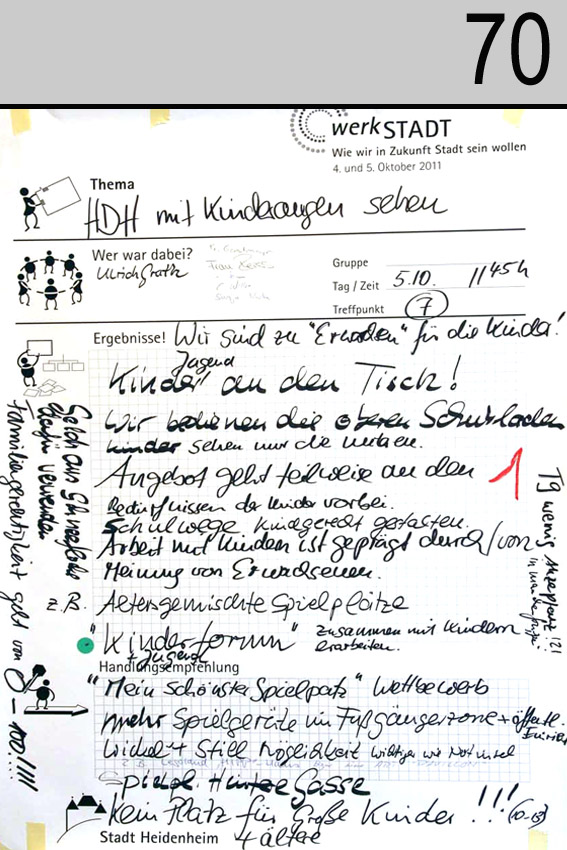 70
werkSTADT
Wie wir in Zukunft Stadt sein wollen
4. und 5. Oktober 2011
Thema
HDH mit Kinderaugen sehen
Wer war dabei?
Ulrich Grath
Frau
Gruppe
Tag / Zeit 5.10. 11 45 h
Treffpunkt 7
Ergebnisse! Wir sind zu "Erwachsen" für die Kinder!
Jugend
Kinder an den Tisch!
Wir bedienen die oberen Schubladen
Kinder sehen nur die unteren.
Angebot geht teilweise an den
Bedürfnissen der Kinder vorbei.
Schulwege kindgerecht gestalten.
Arbeit mit Kindern ist geprägt durch/von
Meinung von Erwachsenen.
z.B. Altersgemischte Spielplätze
"Kinderforum" zusammen mit Kindern
+ Jugend erarbeiten.
Handlungsempfehlung
"Mein schönster Spielplatz" Wettbewerb
mehr Spielgeräte in Fußgängerzone + öffentl.
Wickel + Still Möglichkeit wichtiger wie
Hintere Gasse
kein Platz für Große Kinder!!! (10-15)
+ ältere
Stadt Heidenheim
Geld aus
dafür verwenden
Familiengerechtigkeit geht von
0 - 100!!!!
1
zu wenig Akzeptanz!